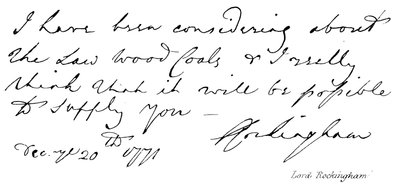 I have been considering about
the Law wood Coals & I really
think that it will be possible
to supply you —
Rockingham
Dec. ye 20th 1771
Lord Rockingham